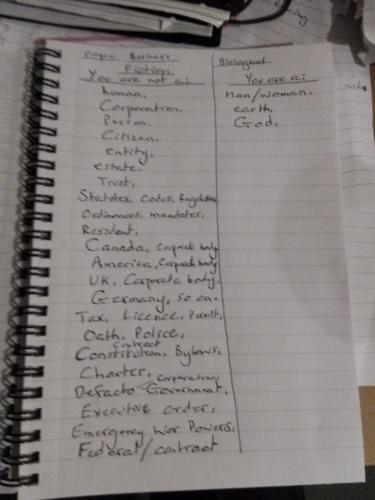 Paper Business
Fiction
You are not a:
human.
Corporation.
Person.
Citizen.
entity.
estate.
Trust,
Statutes, Codes, Regulations
Ordinances, mandates,
Resident,
Canada, Corporate body
America, Corporate body
UK, Corporate body.
Germany, so on.
Tax, Licence, Permit,
Oath, Police,
contract
Constitution, Bylaws,
Charter, Corporations
Defacto Government,
Executive order,
Emergency War Powers,
Federal/contract
Biological
You are a:
Man/woman.
earth.
God.